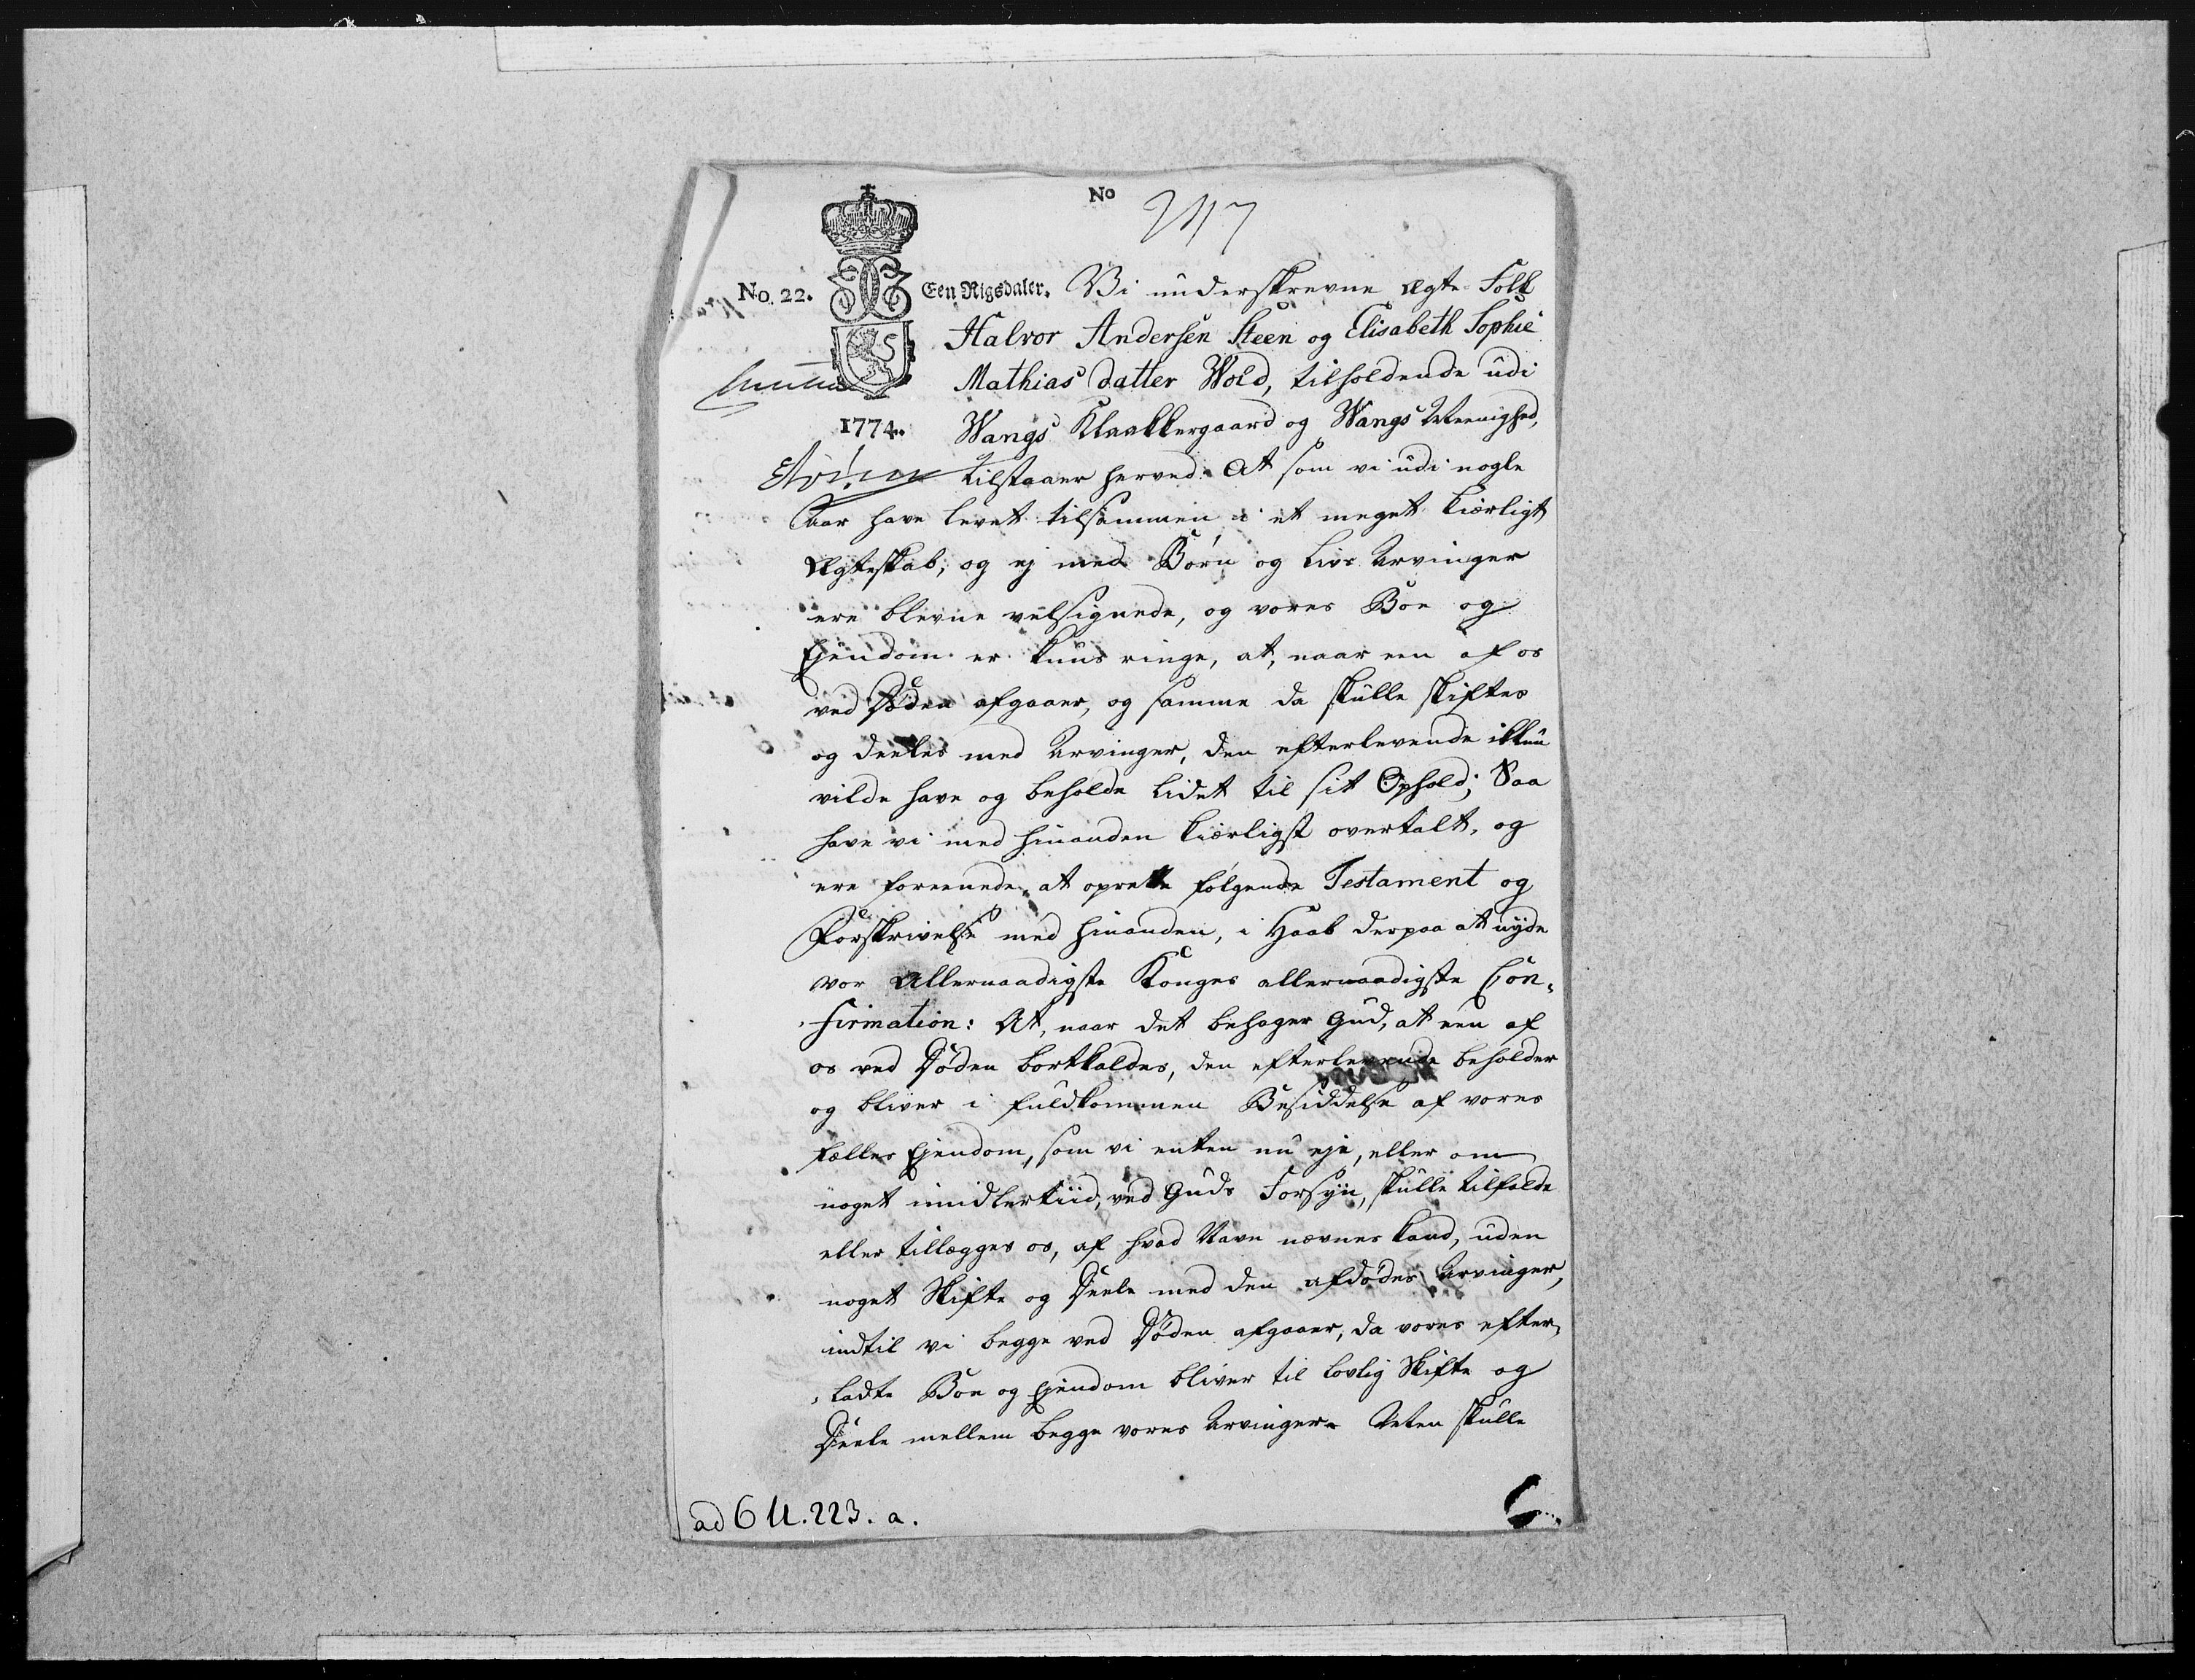 No 2117
No. 22. Een Rigsdaler. Vi underskrevne Ægte Folk
Halvor Andersen Steen og Elisabeth Sophie
Mathias datter Wold, tilholdende udi
1774. Wangs Klakkergaard og Wangs Meenighed,
tilstaaer herved: At som vi udi nogle
Aar have levet tilsammen i et meget kiærligt
Ægteskab, og ej med Børn og Livs Arvinger
ere blevne velsignede, og vores Boe og
Ejendom er kuns ringe, at, naar een af os
ved Døden afgaaer, og samme da skulle skiftes
og deeles med Arvinger, den efterlevende ikkun
vilde have og beholde lidet til sit Ophold; Saa
have vi med hinanden kiærligst overtalt, og
ere foreenede, at oprette følgende Testament og
Forskrivelse med hinanden, i Haab derpaa at nyde
vor Allernaadigste Konges allernaadigste Con-
firmation: At, naar det behager Gud, at een af
os ved Døden bortkaldes, den efterlevende beholder
og bliver i fuldkommen Besiddelse af vores
fælles Ejendom, som vi enten nu eje, eller om
noget imidlertiid, ved Guds Forsyn, skulle tilfalde
eller tillægges os, af hvad Navn nævnes kand, uden
noget Skifte og Deele med den afdødes Arvinger,
indtil vi begge ved Døden afgaaer, da vores efter-
ladte Boe og Ejendom bliver til lovlig Skifte og
Deele mellem begge vores Arvinger. Men skulle
ad 6 U. 223. a.